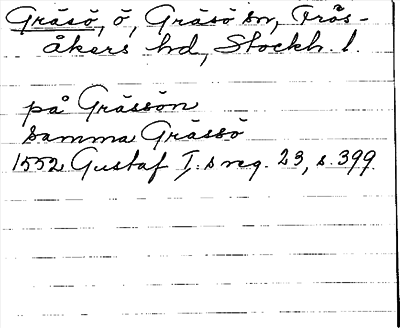 Gräsö, ö, Gräsö sn, Frös-
åkers hd, Stockh. l.
på Grässön
samma Grässö
1552 Gustaf I:s reg. 23, s. 399.